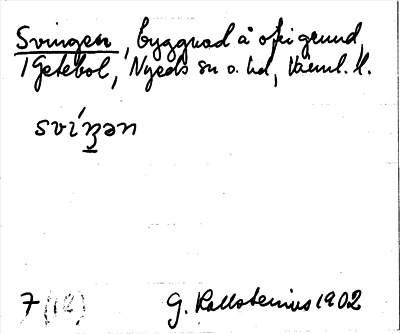 Svingen, byggnad å ofri grund,
i Getebol, Nyeds sn o. hd, Värml. l.
svi´ŋən
7 (12)
G. Kallstenius 1902